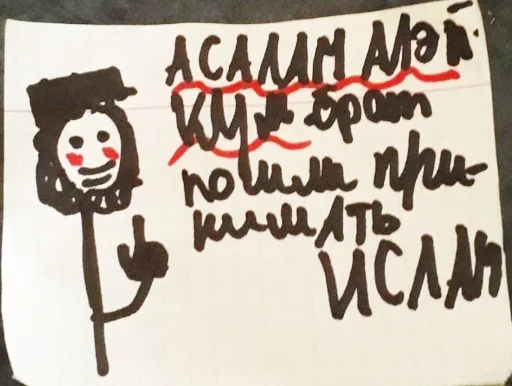 АСАЛАМ АЛЭЙ-
КУМ брат
пошли при-
нимАть
ИСЛАМ